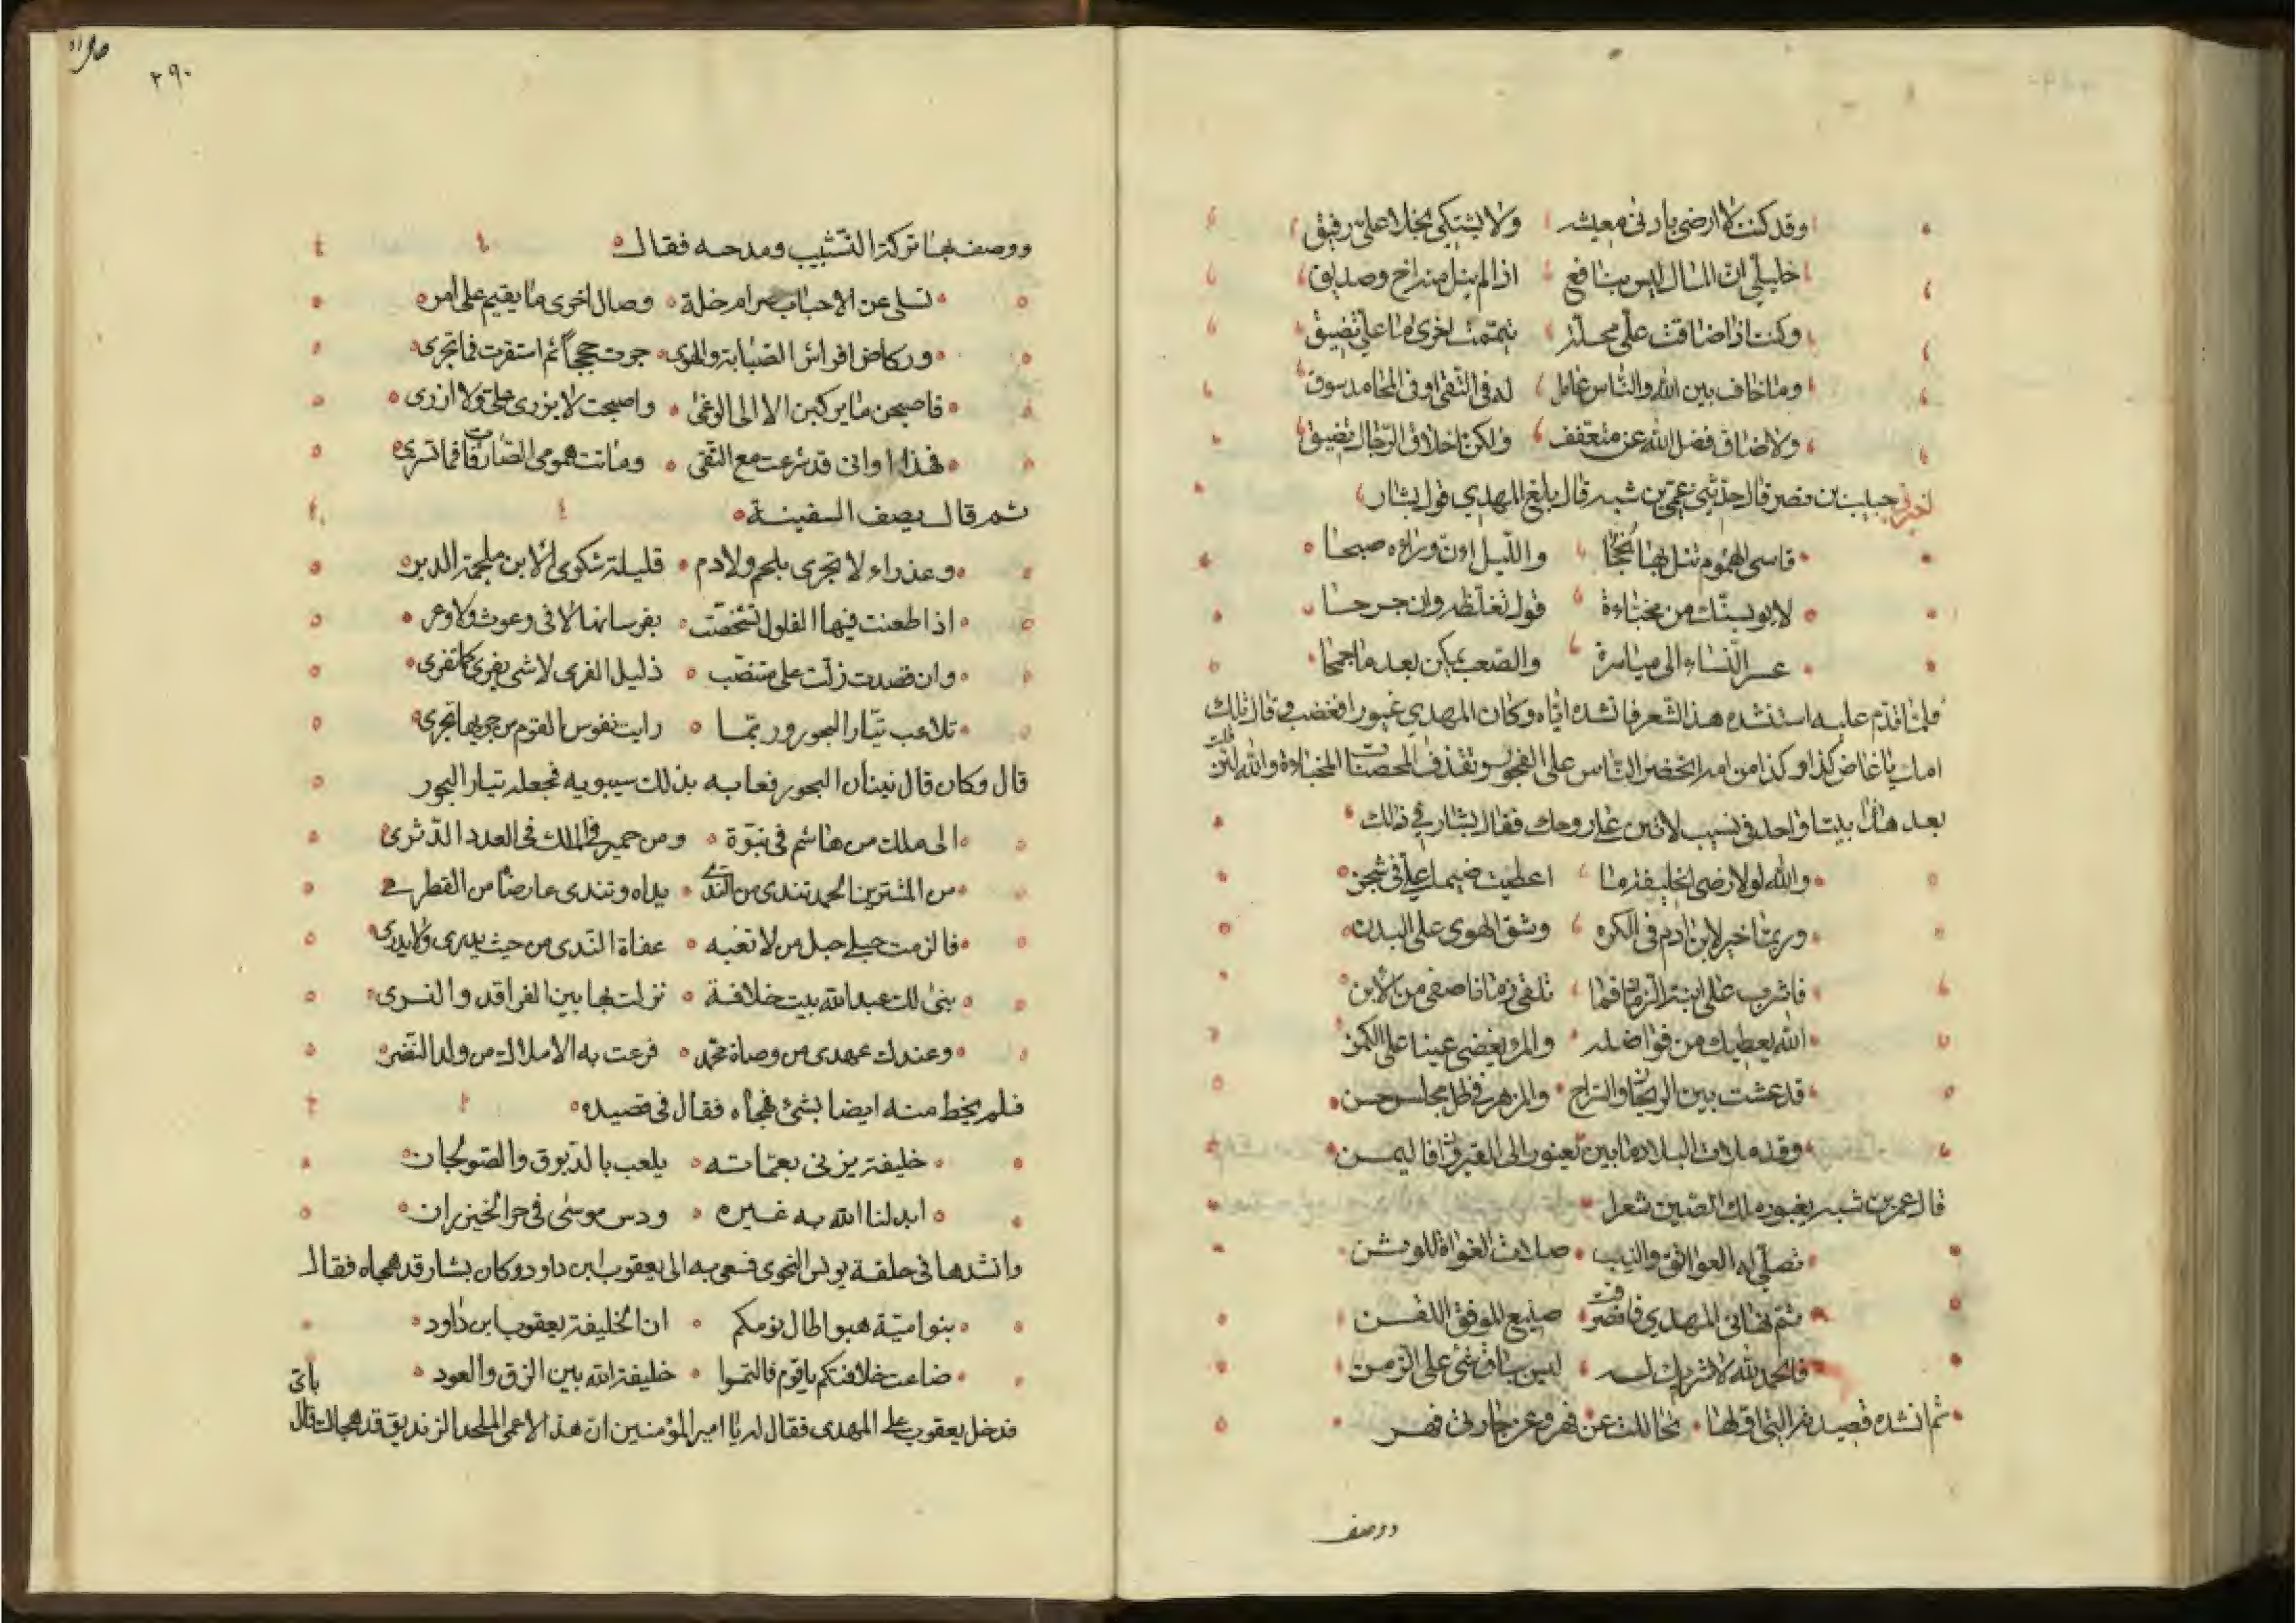 وقد كنت لا ارضى بادنى معيشه ولا يشتكى بخلا على رفيق
خليلى ان المال ليس بنافع اذا لم ينل منه اخ وصديق
وكنت اذا ضاقت على محلة تيممت اخرى ما على تضيق
وما خاف بين الله والناس عامل له فى التقى او فى المحامد سوق
ولا ضاق فضل الله عن متعفف ولكن اخلاق الرجال تضيق
اخبرنى حبيب بن نصر قال حدثنى عمر بن شبه قال بلغ المهدي قول بشار
قاسى الهموم تنل بها نجحا والليل ان وراءه صبحا
لا يويسنك من مخباءة قول تغلظه وان جرحا
عسر النساء الى مياسرة والصعب يمكن بعد ما جمحا
فلما قدم عليه استنشده هذا الشعر فانشده اياه وكان المهدي غيورا فغضب وقال تلك
امك يا عاض كذا وكذا من امه اتحضر الناس على الفجور وتقذف المحصنات المخباءة والله لئن قلت
بعد هذا بيتا واحدا فى نسيب لاتين على روحك فقال بشار فى ذلك
والله لولا رضى الخليفة ما اعطيت ضيما على فى شجن
وربما خير لابن ادم فى الكره وشق الهوى على البدن
فاشرب على ابنة الزمان فما تلقى زمانا صفى من الابن
الله يعطيك من فواضله والمرء يغضى عينا على الكمن
قد عشت بين الريحان والراح والمزهر فى ظل مجلس حسن
وقد ملات البلاد ما بين يغبور الى القيروان فاليمن
قال عمر بن شبه يغبور ملك الصين شعرا
تصلى له العواتق والثيب صلات الغواة للوثن
ثم نهانى المهدي فانصرفت صنيع الموفق اللقن
فالحمد لله لا شريك له ليس بباق شئ على الزمن
ثم انشده قصيدته التى اولها تجاللت عن فهر وعن جارتى فهر
ووصف
٢٩٠
ووصف بها تركه التشبيب ومدحه فقال
تسلى عن الاحباب صرام خلة وصال اخرى ما يقيم على امر
وركاض افراس الصبابة والهوى جرت حججا ثم استقرت فما تجرى
فاصبحن ما يركبن الا الى الوغى واصبحت لا يزرى على ولا ازرى
فهذا اوانى قد شرعت مع التقى وماتت همومى الطارقات فما تسرى
ثم قال يصف السفينة
وعذراء لا تجرى بلحم ولا دم قليلة شكوى الاين ملجمة الدبر
اذا طعنت فيها الفلول تشخصت بفرسانها لا فى وعوث ولا وعر
وان قصدت زلت على متنصب ذليل القرى لا شى يفرى كما تفرى
تلاعب تيار البحور وربما رايت نفوس القوم من جريها تجرى
قال وكان قال نينان البحور فعابه بذلك سيبويه فجعله تيار البحور
الى ملك من هاشم فى نبوة ومن حمير فى الملك فى العدد الدثرى
من المشترين الحمد تندى من الندى يداه وتندى عارضا من القطر
فالزمت حبلى حبل من لا تغبه عفاة الندى من حيث يدرى ولا يدرى
بنى لك عبد الله بيت خلافة نزلت بها بين الفراقد والنسرى
وعندك عهدى من وصاة محمد فرعت به الاملاك من ولد النضر
فلم يحظ منه ايضا بشئ فهجاه فقال فى قصيده
خليفة يزنى بعماته يلعب بالدبوق والصولجان
ابدلنا الله به غيره ودس موسى فى حر الخيزران
وانشدها فى حلقة يونس النحوى فسعى به الى يعقوب ابن داود وكان بشار قد هجاه فقال
بنو امية هبوا طال نومكم ان الخليفة يعقوب ابن داود
ضاعت خلافتكم يا قوم فالتمسوا خليفة الله بين الزق والعود
فدخل يعقوب على المهدى فقال له يا امير المؤمنين ان هذا الاعمى الملحد الزنديق قد هجاك قال باى